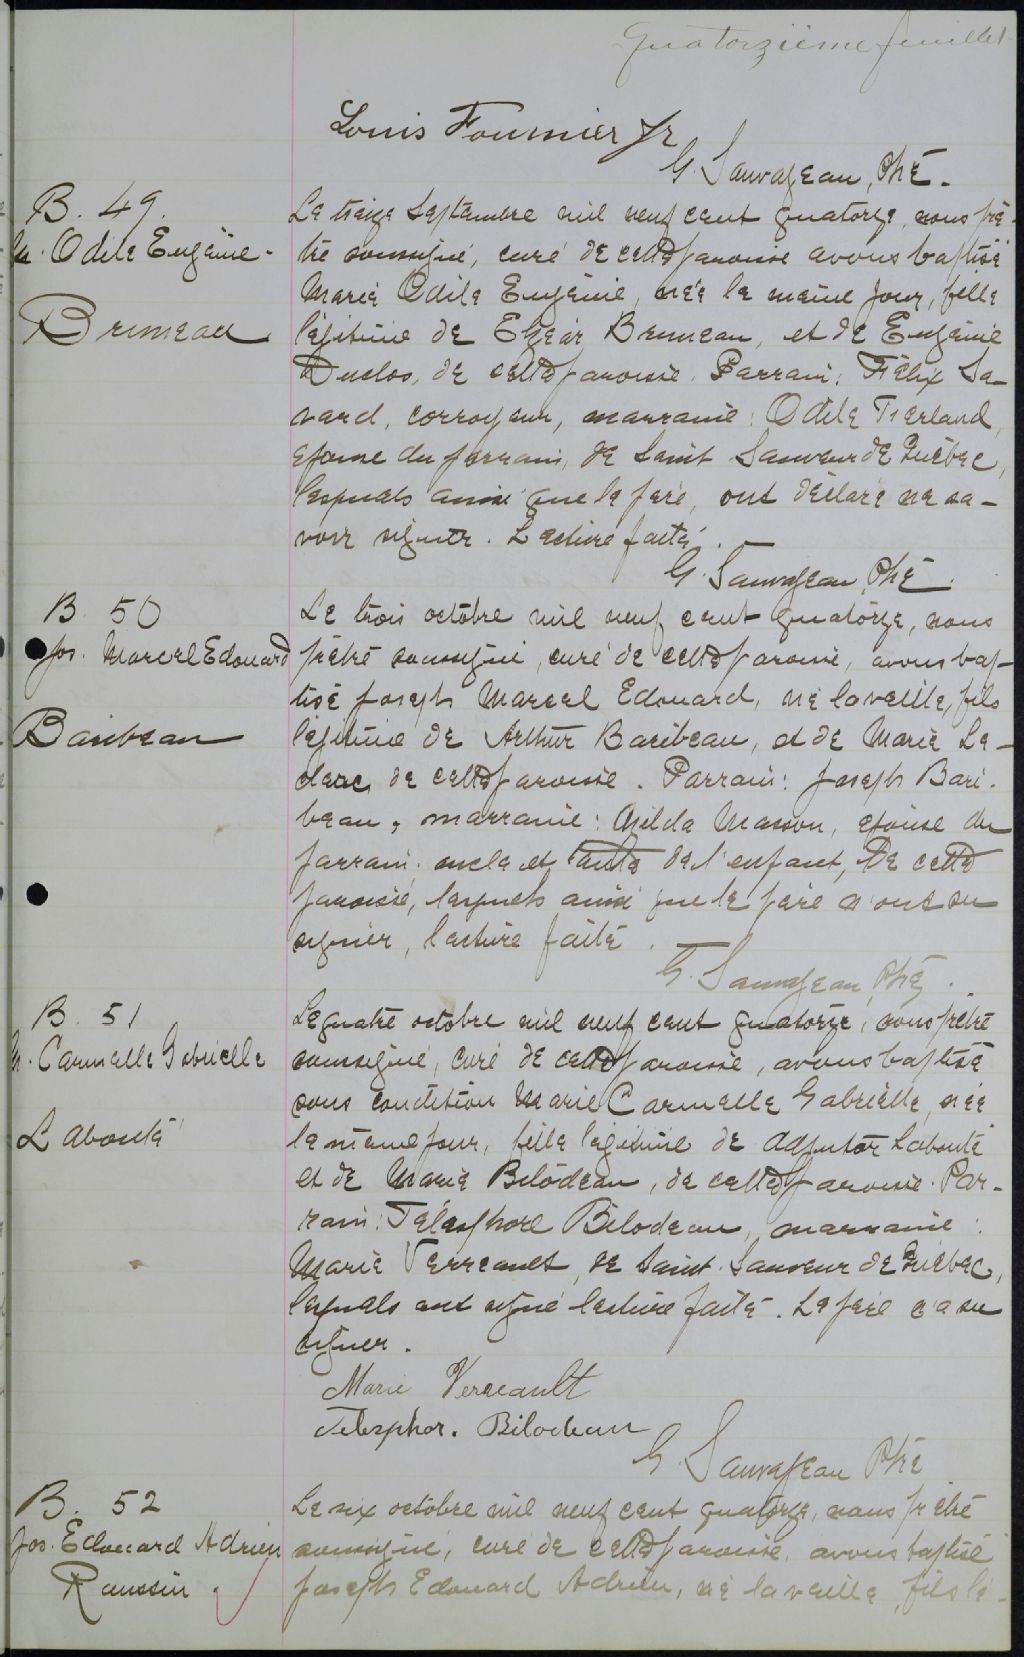 Quatorzième feuillet
Louis Fournier Jr
G. Sauvageau, Ptre.
B. 49.
M. Odile Eugénie
Bruneau
Le treize septembre mil neuf cent quatorze, nous prê-
tre soussigné, curé de cette paroisse avons baptisé
Marie Odile Eugénie, née le même jour, fille
légitime de Elzéar Bruneau, et de Eugénie
Duclos, de cette paroisse. Parrain: Félix Sa-
vard, corroyeur, marraine: Odile Tierland,
épouse du parrain, de Saint Sauveur de Québec,
lesquels ainsi que le père, ont déclaré ne sa-
voir signer. Lecture faite.
G. Sauvageau, Ptre.
B. 50
Jos. Marcel Edouard
Baribeau
Le trois octobre mil neuf cent quatorze, nous
prêtre soussigné, curé de cette paroisse, avons bap-
tisé Joseph Marcel Edouard, né la veille, fils
légitime de Arthur Baribeau, et de Marie Le-
clerc de cette paroisse. Parrain: Joseph Bari-
beau, marraine: Exilda Masson, épouse du
parrain, oncle et tante de l'enfant, de cette
paroisse, lesquels ainsi que le père n'ont su
signer, lecture faite.
G. Sauvageau, Ptre.
B. 51
M. Carmelle Gabrielle
Labonté
Le quatre octobre mil neuf cent quatorze, nous prêtre
soussigné, curé de cette paroisse, avons baptisé
sous condition Marie Carmelle Gabrielle, née
le même jour, fille légitime de Adjutor Labonté
et de Marie Bilodeau, de cette paroisse. Par-
rain: Télesphore Bilodeau, marraine:
Marie Verreault, de Saint-Sauveur de Québec,
lesquels ont signé lecture faite. Le père n'a su
signer.
Marie Verreault
Telesphor. Bilodeau
G. Sauvageau Ptre
B. 52
Jos. Edouard Adrien
Roussin
Le six octobre mil neuf cent quatorze, nous prêtre
soussigné, curé de cette paroisse, avons baptisé
Joseph Edouard Adrien, né la veille, fils lé-